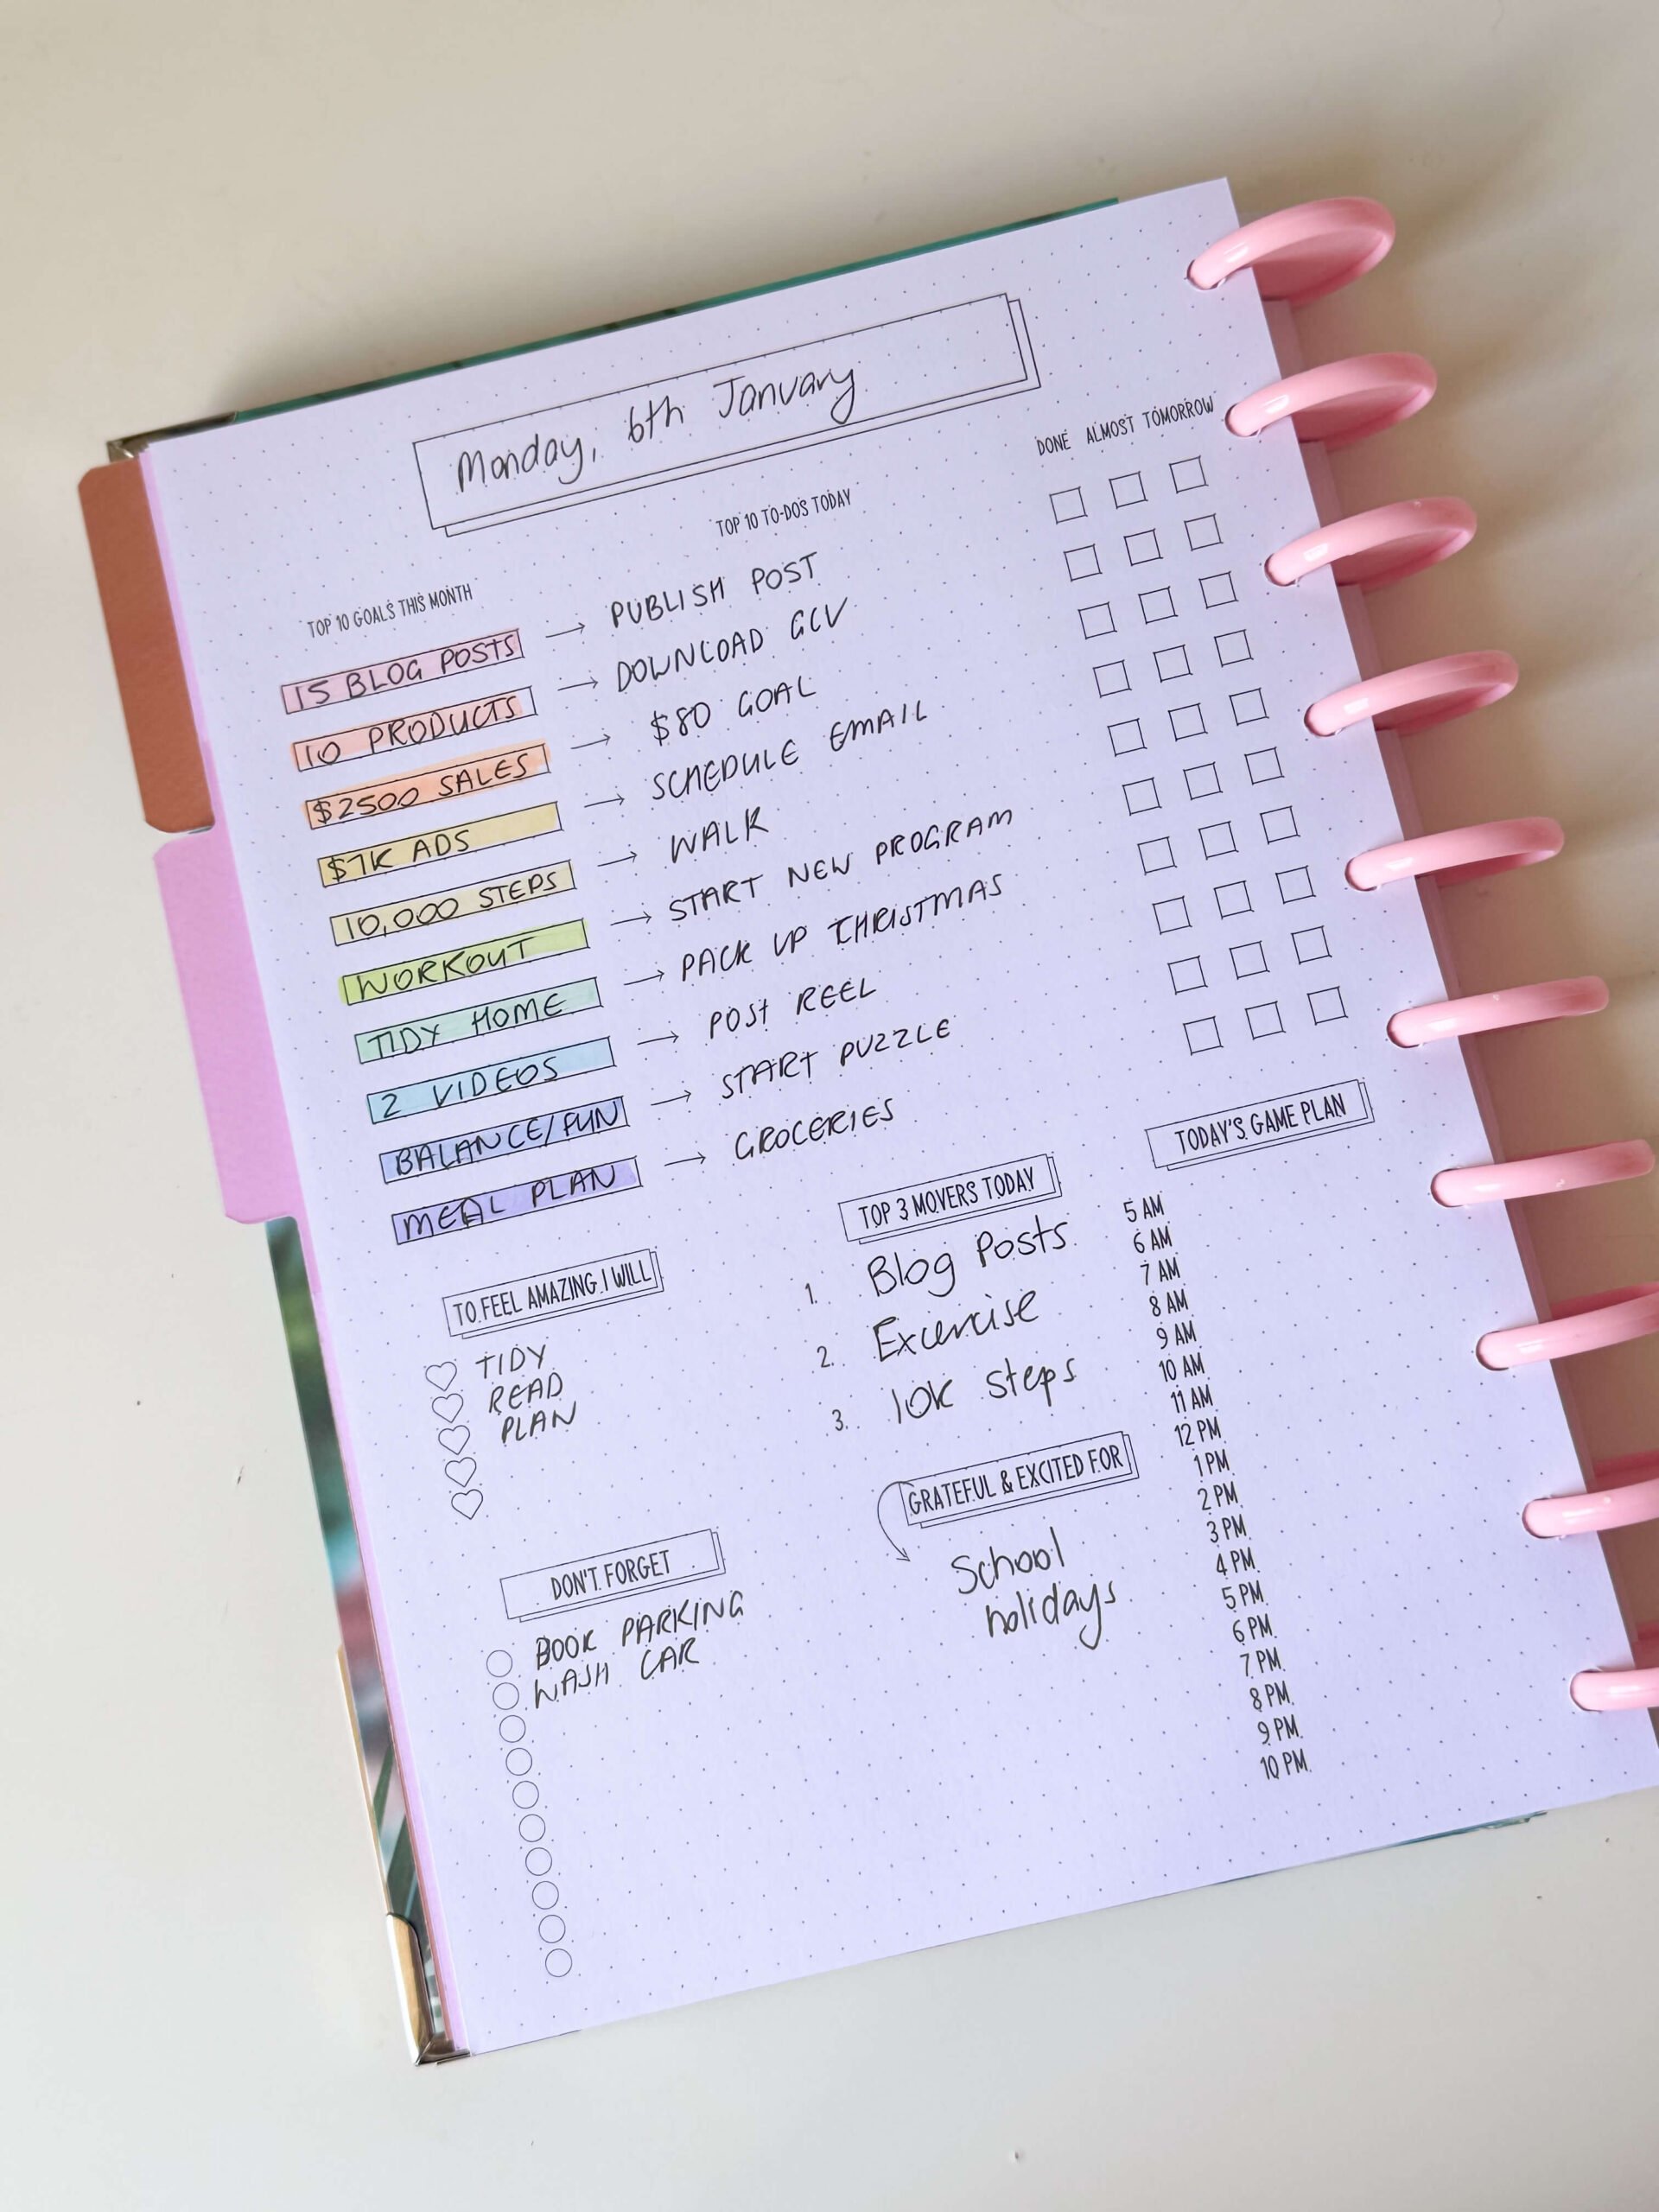 Monday, 6th January
DONE ALMOST TOMORROW
TOP 10 GOALS THIS MONTH
TOP 10 TO-DOS TODAY
15 BLOG POSTS → PUBLISH POST
10 PRODUCTS → DOWNLOAD GCV
$2500 SALES → $80 GOAL
$1K ADS → SCHEDULE EMAIL
10,000 STEPS → WALK
WORKOUT → START NEW PROGRAM
TIDY HOME → PACK UP CHRISTMAS
2 VIDEOS → POST REEL
BALANCE/FUN → START PUZZLE
MEAL PLAN → GROCERIES
TO FEEL AMAZING I WILL
TIDY
READ
PLAN
DON'T FORGET
BOOK PARKING
WASH CAR
TOP 3 MOVERS TODAY
1. Blog Posts
2. Excercise
3. 10K Steps
GRATEFUL & EXCITED FOR
School
holidays
TODAY'S GAME PLAN
5 AM
6 AM
7 AM
8 AM
9 AM
10 AM
11 AM
12 PM
1 PM
2 PM
3 PM
4 PM
5 PM
6 PM
7 PM
8 PM
9 PM
10 PM